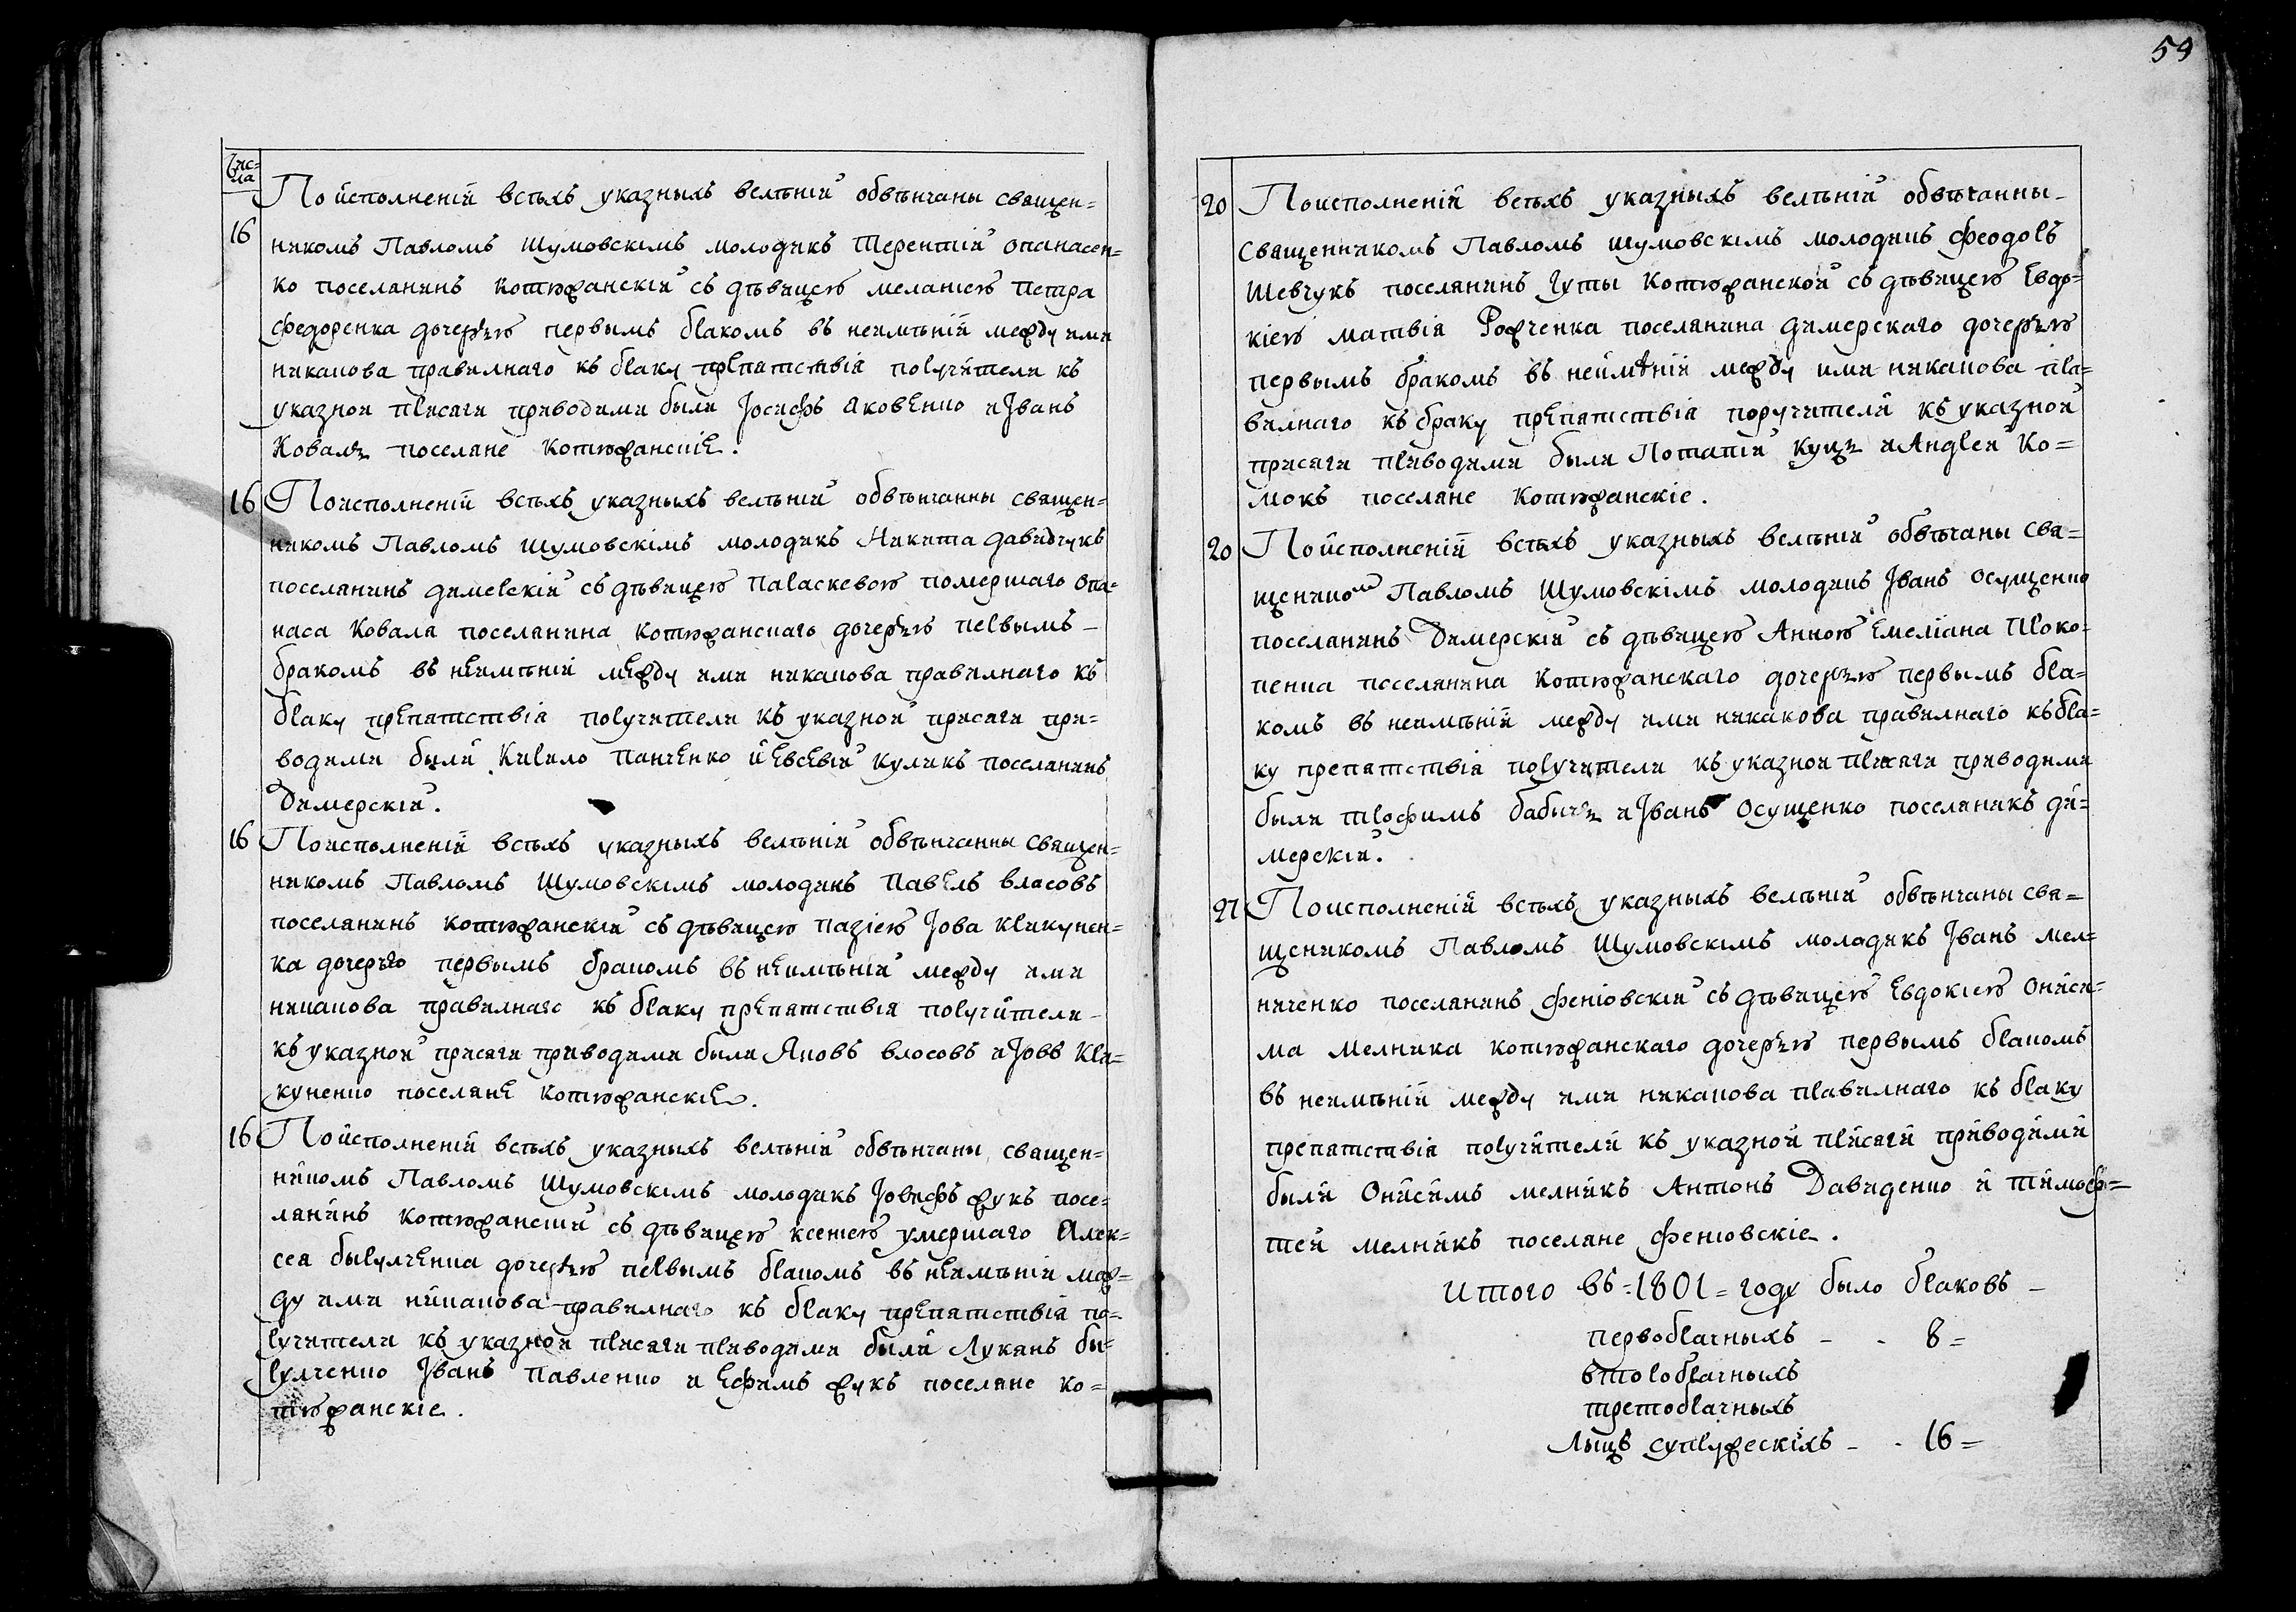 59
Чис=
ла
По исполненїи всѣхъ указныхъ велѣнїй обвѣнчаны священ=
16
никомъ Павломъ Шумовскимъ молодикъ Терентїй опанасен=
ко поселянинъ котюжанскїй съ дѣвицею меланїею петра
федоренка дочерью первымъ бракомъ въ неимѣнїи между ими
никакова правилнаго къ браку препятствїя поручители къ
указной присяги приводими были Іосифъ яковенко и Іванъ
Коваль поселяне котюжанскіе.
16 По исполненїи всѣхъ указныхъ велѣнїй обвѣнчанны священ=
никомъ Павломъ Шумовскїмъ молодикъ Никита давидчукъ
поселянинъ димерскїй съ дѣвицею параскевою помершаго опа=
наса Коваля поселянина котюжанскаго дочерью первымъ
бракомъ въ неимѣнїи между ими никакова правилнаго къ
браку препятствїя поручители къ указной присяги при=
водими были Кирило панченко и евсевїй куликъ поселянинъ
Димерскїй.
16 По исполненїи всѣхъ указныхъ велѣнїй обвѣнчанны священ=
никомъ Павломъ Шумовскїмъ молодикъ павелъ власовъ
поселянинъ котюжанскїй съ дѣвицею пазїею Іова крикунен=
ка дочерью первымъ бракомъ въ неимѣнїи между ими
никакова правилнаго къ браку препятствїя поручители
къ указной присяги приводими были Яковъ влосовъ и Іовъ кри=
куненко поселяне котюжанскіе.
16 По исполненїи всѣхъ указныхъ велѣнїй обвѣнчаны священ=
никомъ Павломъ Шумовскїмъ молодикъ Іосифъ жукъ посе=
лянинъ котюжанскїй съ дѣвицею ксенїею умершаго Алек=
сея бурулченка дочерью первымъ бракомъ въ неимѣнїи меж=
ду ими никакова правилнаго къ браку препятствїя по=
ручители къ указной присяги приводими были Лукянъ бу=
рулченко Іванъ павленко и ефимъ жукъ поселяне ко=
тюжанскіе.
20 По исполненїи всѣхъ указныхъ велѣнїй обвѣчанны
Священникомъ Павломъ шумовскїмъ молодикъ феодоръ
Шевчукъ поселянинъ гуты котюжанской съ дѣвицею Евдо=
кїею матвїя Рожченка поселянина димерскаго дочерью
первымъ бракомъ въ неимѣнїи между ими никакова пра=
вилнаго къ браку препятствїя поручители къ указной
присяги приводими были Потапїй куць и Андрей Ко=
мокъ поселяне котюжанскіе.
20 По исполненїи всѣхъ указныхъ велѣнїй обвѣчаны свя=
щеникомъ Павломъ Шумовскїмъ молодикъ Іванъ осущенко
поселянинъ Димерскїй съ дѣвицею Анною Емелїана Проко=
пенка поселянина котюжанскаго дочерью первымъ бра=
комъ въ неимѣнїи между ими никакова правилнаго къ бра=
ку препятствїя поручители къ указной присяги приводими
были трофимъ бабичь и Іванъ Осущенко поселяникъ ди=
мерскїй.
27 По исполненїи всѣхъ указныхъ велѣнїй обвѣнчаны свя=
щеникомъ Павломъ Шумовскїмъ молодикъ Іванъ мел=
ниченко поселянинъ фенїовскїй съ дѣвицею Евдокїею Ониси=
ма Мелника котюжанскаго дочерью первымъ бракомъ
въ неимѣнїи между ими никакова правилнаго къ браку
препятствїя поручители къ указной присяги приводими
были Онисимъ мелникъ Антонъ Давиденко и тимоф=
тей мелникъ поселяне фенїовскіе.
итого въ = 1801 = году было браковъ
первобрачныхъ - - 8 =
второбрачныхъ
третобрачныхъ
Лицъ супружескїхъ - - 16 =